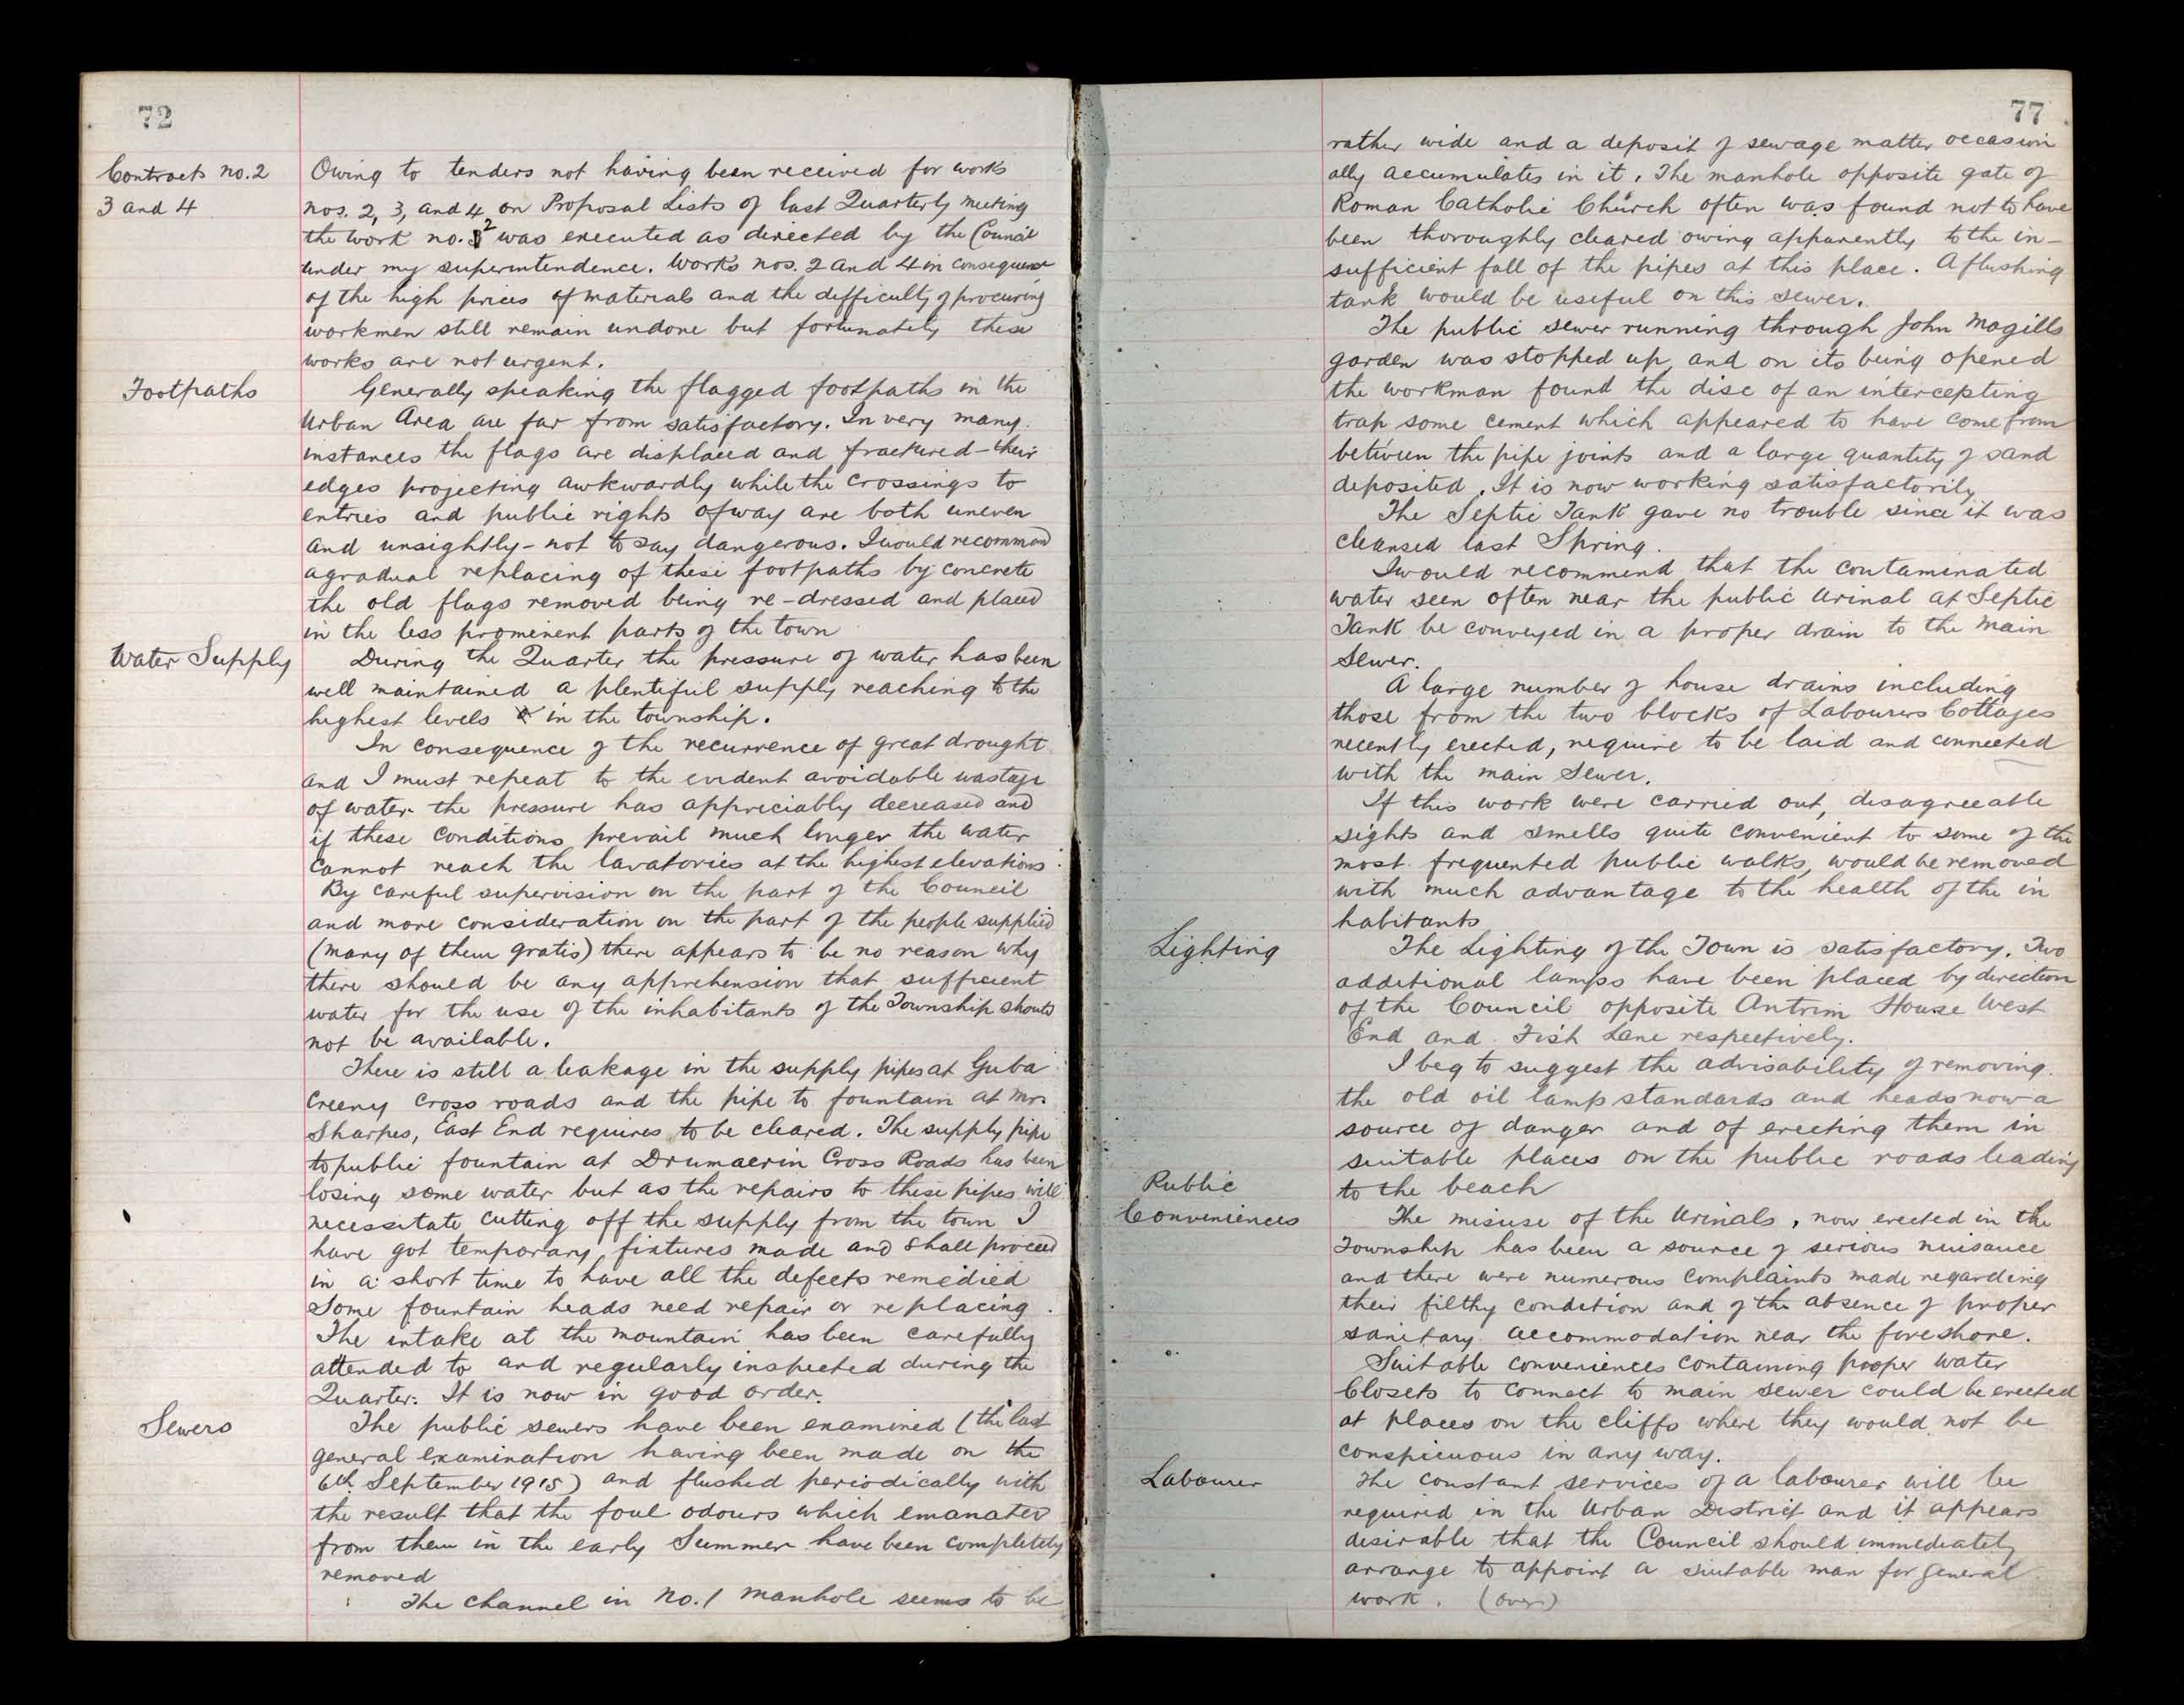 72
Contracts no. 2
3 and 4
Owing to tenders not having been received for works
nos. 2, 3, and 4 on Proposal Lists of last Quarterly meeting
the work no. 2 was executed as directed by the Council
under my superintendence. Works nos. 2 and 4 in consequence
of the high prices of materials and the difficulty of procuring
workmen still remain undone but fortunately these
works are not urgent.
Footpaths
Generally speaking the flagged footpaths in the
Urban Area are far from satisfactory. In very many
instances the flags are displaced and fractured - their
edges projecting awkwardly while the crossings to
entries and public rights of way are both uneven
and unsightly - not to say dangerous. I would recommend
a gradual replacing of these footpaths by concrete
the old flags removed being re-dressed and placed
in the less prominent parts of the town
Water Supply
During the Quarter the pressure of water has been
well maintained a plentiful supply reaching to the
highest levels in the township.
In consequence of the recurrence of great drought
and I must repeat to the evident avoidable wastage
of water the pressure has appreciably decreased and
if these conditions prevail much longer the water
cannot reach the lavatories at the highest elevations.
By careful supervision on the part of the Council
and more consideration on the part of the people supplied
(many of them gratis) there appears to be no reason why
there should be any apprehension that sufficient
water for the use of the inhabitants of the Township should
not be available.
There is still a leakage in the supply pipes at Guba
Creeny Cross roads and the pipe to fountain at Mr.
Sharpes, East End requires to be cleared. The supply pipe
to public fountain at Drumaerin Cross Roads has been
losing some water but as the repairs to these pipes will
necessitate cutting off the supply from the town I
have got temporary fixtures made and shall proceed
in a short time to have all the defects remedied
Some fountain heads need repair or replacing.
The intake at the mountain has been carefully
attended to and regularly inspected during the
Quarter. It is now in good order.
Sewers
The public sewers have been examined (the last
general examination having been made on the
6th September 1915) and flushed periodically with
the result that the foul odours which emanated
from them in the early Summer have been completely
removed
The channel in No. 1 manhole seems to be
77
rather wide and a deposit of sewage matter occasion
ally accumulates in it. The manhole opposite gate of
Roman Catholic Church often was found not to have
been thoroughly cleared owing apparently to the in-
sufficient fall of the pipes at this place. A flushing
tank would be useful on this sewer.
The public sewer running through John Magills
garden was stopped up, and on its being opened
the workman found the disc of an intercepting
trap some cement which appeared to have come from
between the pipe joints and a large quantity of sand
deposited. It is now working satisfactorily
The Septic Tank gave no trouble since it was
cleansed last Spring.
I would recommend that the contaminated
water seen often near the public Urinal at Septic
Tank be conveyed in a proper drain to the main
Sewer.
A large number of house drains including
those from the two blocks of Labourers Cottages
recently erected, require to be laid and connected
with the main Sewer.
If this work were carried out, disagreeable
sights and smells quite convenient to some of the
most frequented public walks, would be removed
with much advantage to the health of the in
habitants
Lighting
The Lighting of the Town is satisfactory. Two
additional lamps have been placed by direction
of the Council opposite Antrim House West
End and Fish Lane respectively.
I beg to suggest the advisability of removing
the old oil lamp standards and heads now a
source of danger and of erecting them in
suitable places on the public roads leading
to the beach
Public
Conveniences
The misuse of the Urinals, now erected in the
Township has been a source of serious nuisance
and there were numerous complaints made regarding
their filthy condition and of the absence of proper
sanitary accommodation near the foreshore.
Suitable conveniences containing proper water
Closets to connect to main sewer could be erected
at places on the cliffs where they would not be
conspicuous in any way.
Labourer
The constant services of a labourer will be
required in the Urban District and it appears
desirable that the Council should immediately
arrange to appoint a suitable man for general
work. (over)